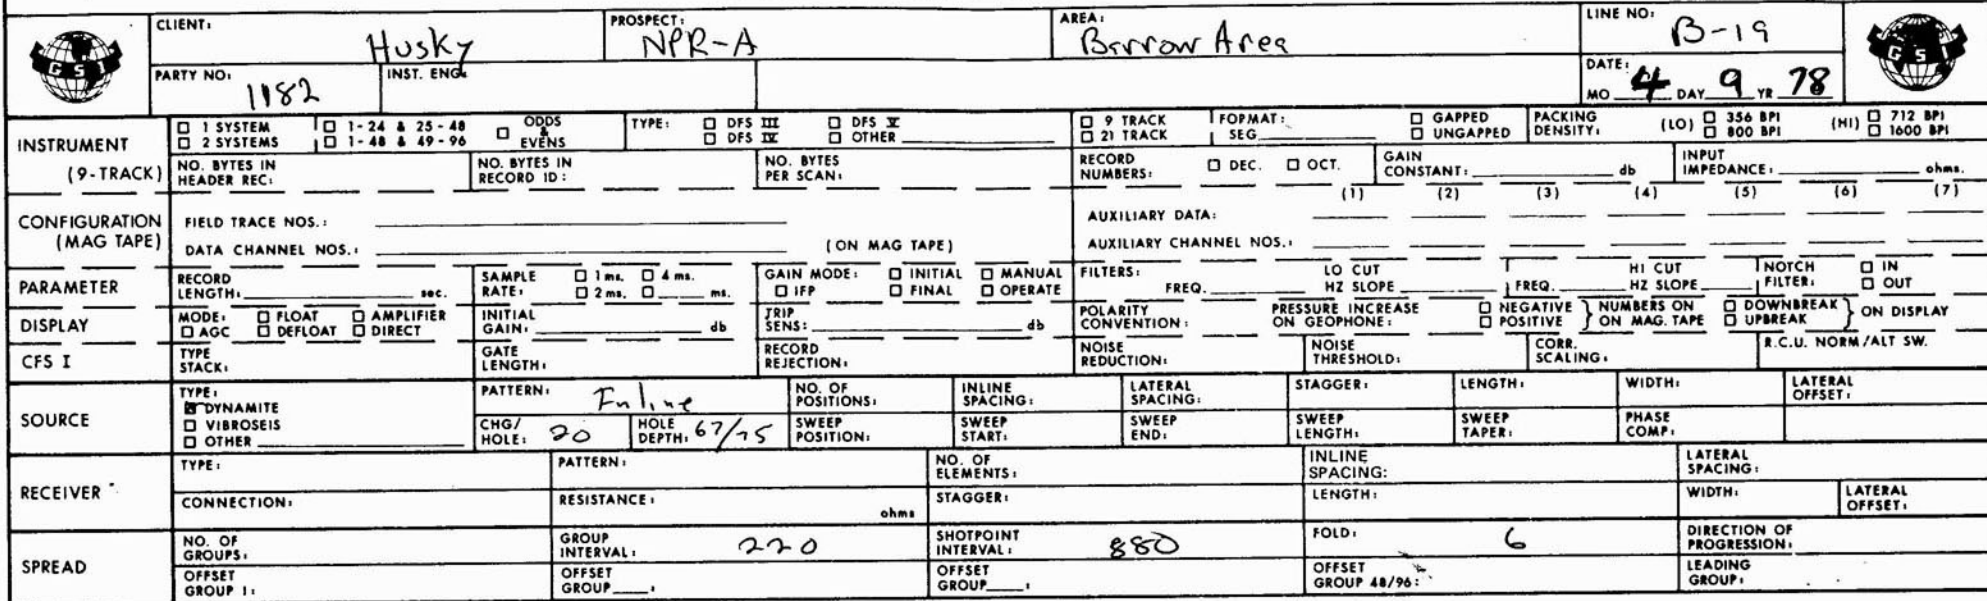 CLIENT: Husky PROSPECT: NPR-A AREA: Barrow Area LINE NO: B-19
GSI
PARTY NO: 1182 INST. ENG: DATE: MO 4 DAY 9 YR 78
GSI
INSTRUMENT (9-TRACK)
☐ 1 SYSTEM ☐ 1-24 & 25-48 ☐ ODDS & EVENS TYPE: ☐ DFS III ☐ DFS V ☐ 9 TRACK FORMAT: ☐ GAPPED PACKING DENSITY: (LO) ☐ 356 BPI (HI) ☐ 712 BPI
☐ 2 SYSTEMS ☐ 1-48 & 49-96 ☐ DFS IV ☐ OTHER ☐ 21 TRACK SEG ☐ UNGAPPED ☐ 800 BPI ☐ 1600 BPI
NO. BYTES IN HEADER REC: NO. BYTES IN RECORD ID: NO. BYTES PER SCAN: RECORD NUMBERS: ☐ DEC. ☐ OCT. GAIN CONSTANT: db INPUT IMPEDANCE: ohms.
(1) (2) (3) (4) (5) (6) (7)
CONFIGURATION (MAG TAPE)
FIELD TRACE NOS.: AUXILIARY DATA:
DATA CHANNEL NOS.: (ON MAG TAPE) AUXILIARY CHANNEL NOS.:
PARAMETER
RECORD LENGTH: sec. SAMPLE RATE: ☐ 1 ms. ☐ 4 ms. ☐ 2 ms. ☐ ms. GAIN MODE: ☐ INITIAL ☐ MANUAL ☐ IFP ☐ FINAL ☐ OPERATE FILTERS: FREQ. LO CUT HZ SLOPE FREQ. HI CUT HZ SLOPE NOTCH FILTER: ☐ IN ☐ OUT
DISPLAY
MODE: ☐ FLOAT ☐ AMPLIFIER ☐ AGC ☐ DEFLOAT ☐ DIRECT INITIAL GAIN: db TRIP SENS: db POLARITY CONVENTION: PRESSURE INCREASE ON GEOPHONE: ☐ NEGATIVE ☐ POSITIVE } NUMBERS ON ON MAG. TAPE ☐ DOWNBREAK ☐ UPBREAK } ON DISPLAY
CFS I
TYPE STACK: GATE LENGTH: RECORD REJECTION: NOISE REDUCTION: NOISE THRESHOLD: CORR. SCALING: R.C.U. NORM/ALT SW.
SOURCE
TYPE: ☒ DYNAMITE ☐ VIBROSEIS ☐ OTHER
PATTERN: Inline NO. OF POSITIONS: INLINE SPACING: LATERAL SPACING: STAGGER: LENGTH: WIDTH: LATERAL OFFSET:
CHG/HOLE: 20 HOLE DEPTH: 67/75 SWEEP POSITION: SWEEP START: SWEEP END: SWEEP LENGTH: SWEEP TAPER: PHASE COMP:
RECEIVER
TYPE: PATTERN: NO. OF ELEMENTS: INLINE SPACING: LATERAL SPACING:
CONNECTION: RESISTANCE: ohms STAGGER: LENGTH: WIDTH: LATERAL OFFSET:
SPREAD
NO. OF GROUPS: GROUP INTERVAL: 220 SHOTPOINT INTERVAL: 880 FOLD: 6 DIRECTION OF PROGRESSION:
OFFSET GROUP 1: OFFSET GROUP : OFFSET GROUP : OFFSET GROUP 48/96: LEADING GROUP: